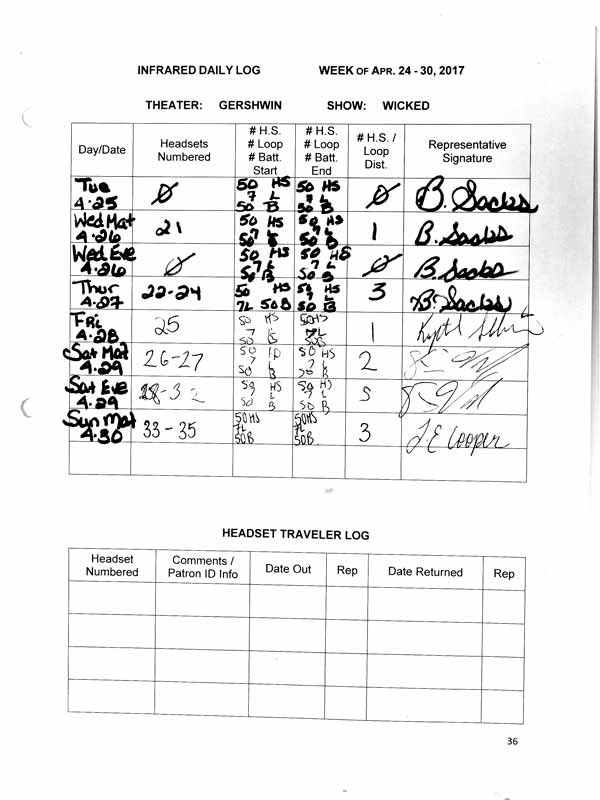 INFRARED DAILY LOG WEEK OF APR. 24 - 30, 2017
THEATER: GERSHWIN SHOW: WICKED
Day/Date Headsets Numbered # H.S. # Loop # Batt. Start # H.S. # Loop # Batt. End # H.S. / Loop Dist. Representative Signature
Tue 4.25 Ø 50 HS 7 L 50 B 50 HS 7 L 50 B Ø B. Sacks
Wed Mat 4.26 21 50 HS 7 L 50 B 50 HS 7 L 50 B 1 B. Sacks
Wed Eve 4.26 Ø 50 HS 7 L 50 B 50 HS 7 L 50 B Ø B. Sacks
Thur 4.27 22-24 50 HS 7L 50B 50 HS 7 L 50 B 3 B. Sacks
Fri 4.28 25 50 HS 7 L 50 B 50HS 7L 50B 1
Sat Mat 4.29 26-27 50 7 L 50 B 50 HS 7 L 50 B 2
Sat Eve 4.29 28-32 50 HS 7 L 50 B 50 HS 7 L 50 B 5
Sun Mat 4.30 33-35 50HS 7L 50B 50HS 7L 50B 3 J.E Cooper
HEADSET TRAVELER LOG
Headset Numbered Comments / Patron ID Info Date Out Rep Date Returned Rep
36